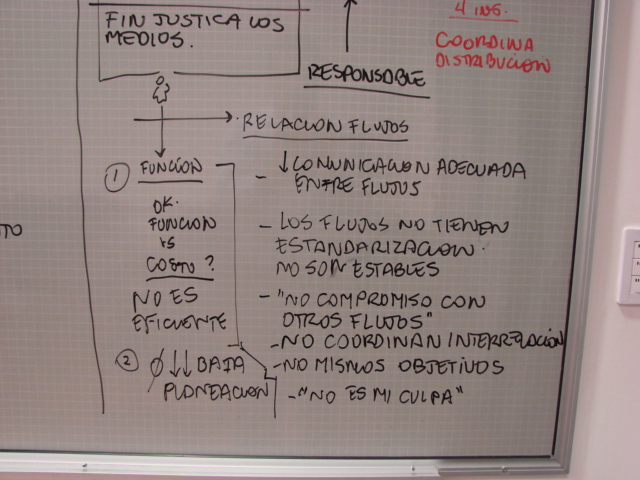 FIN JUSTICA LOS
MEDIOS.
RESPONSABLE
4 ING.
COORDINA
DISTRIBUCION
RELACION FLUJOS
1 FUNCION
OK.
FUNCION
VS
COSTO?
NO ES
EFICIENTE
2 Ø↓↓ BAJA
PLANEACION
- ↓ COMUNICACION ADECUADA
ENTRE FLUJOS
- LOS FLUJOS NO TIENEN
ESTANDARIZACION.
NO SON ESTABLES
- "NO COMPROMISO CON
OTROS FLUJOS"
- NO COORDINAN INTERRELACION
- NO MISMOS OBJETIVOS
- "NO ES MI CULPA"